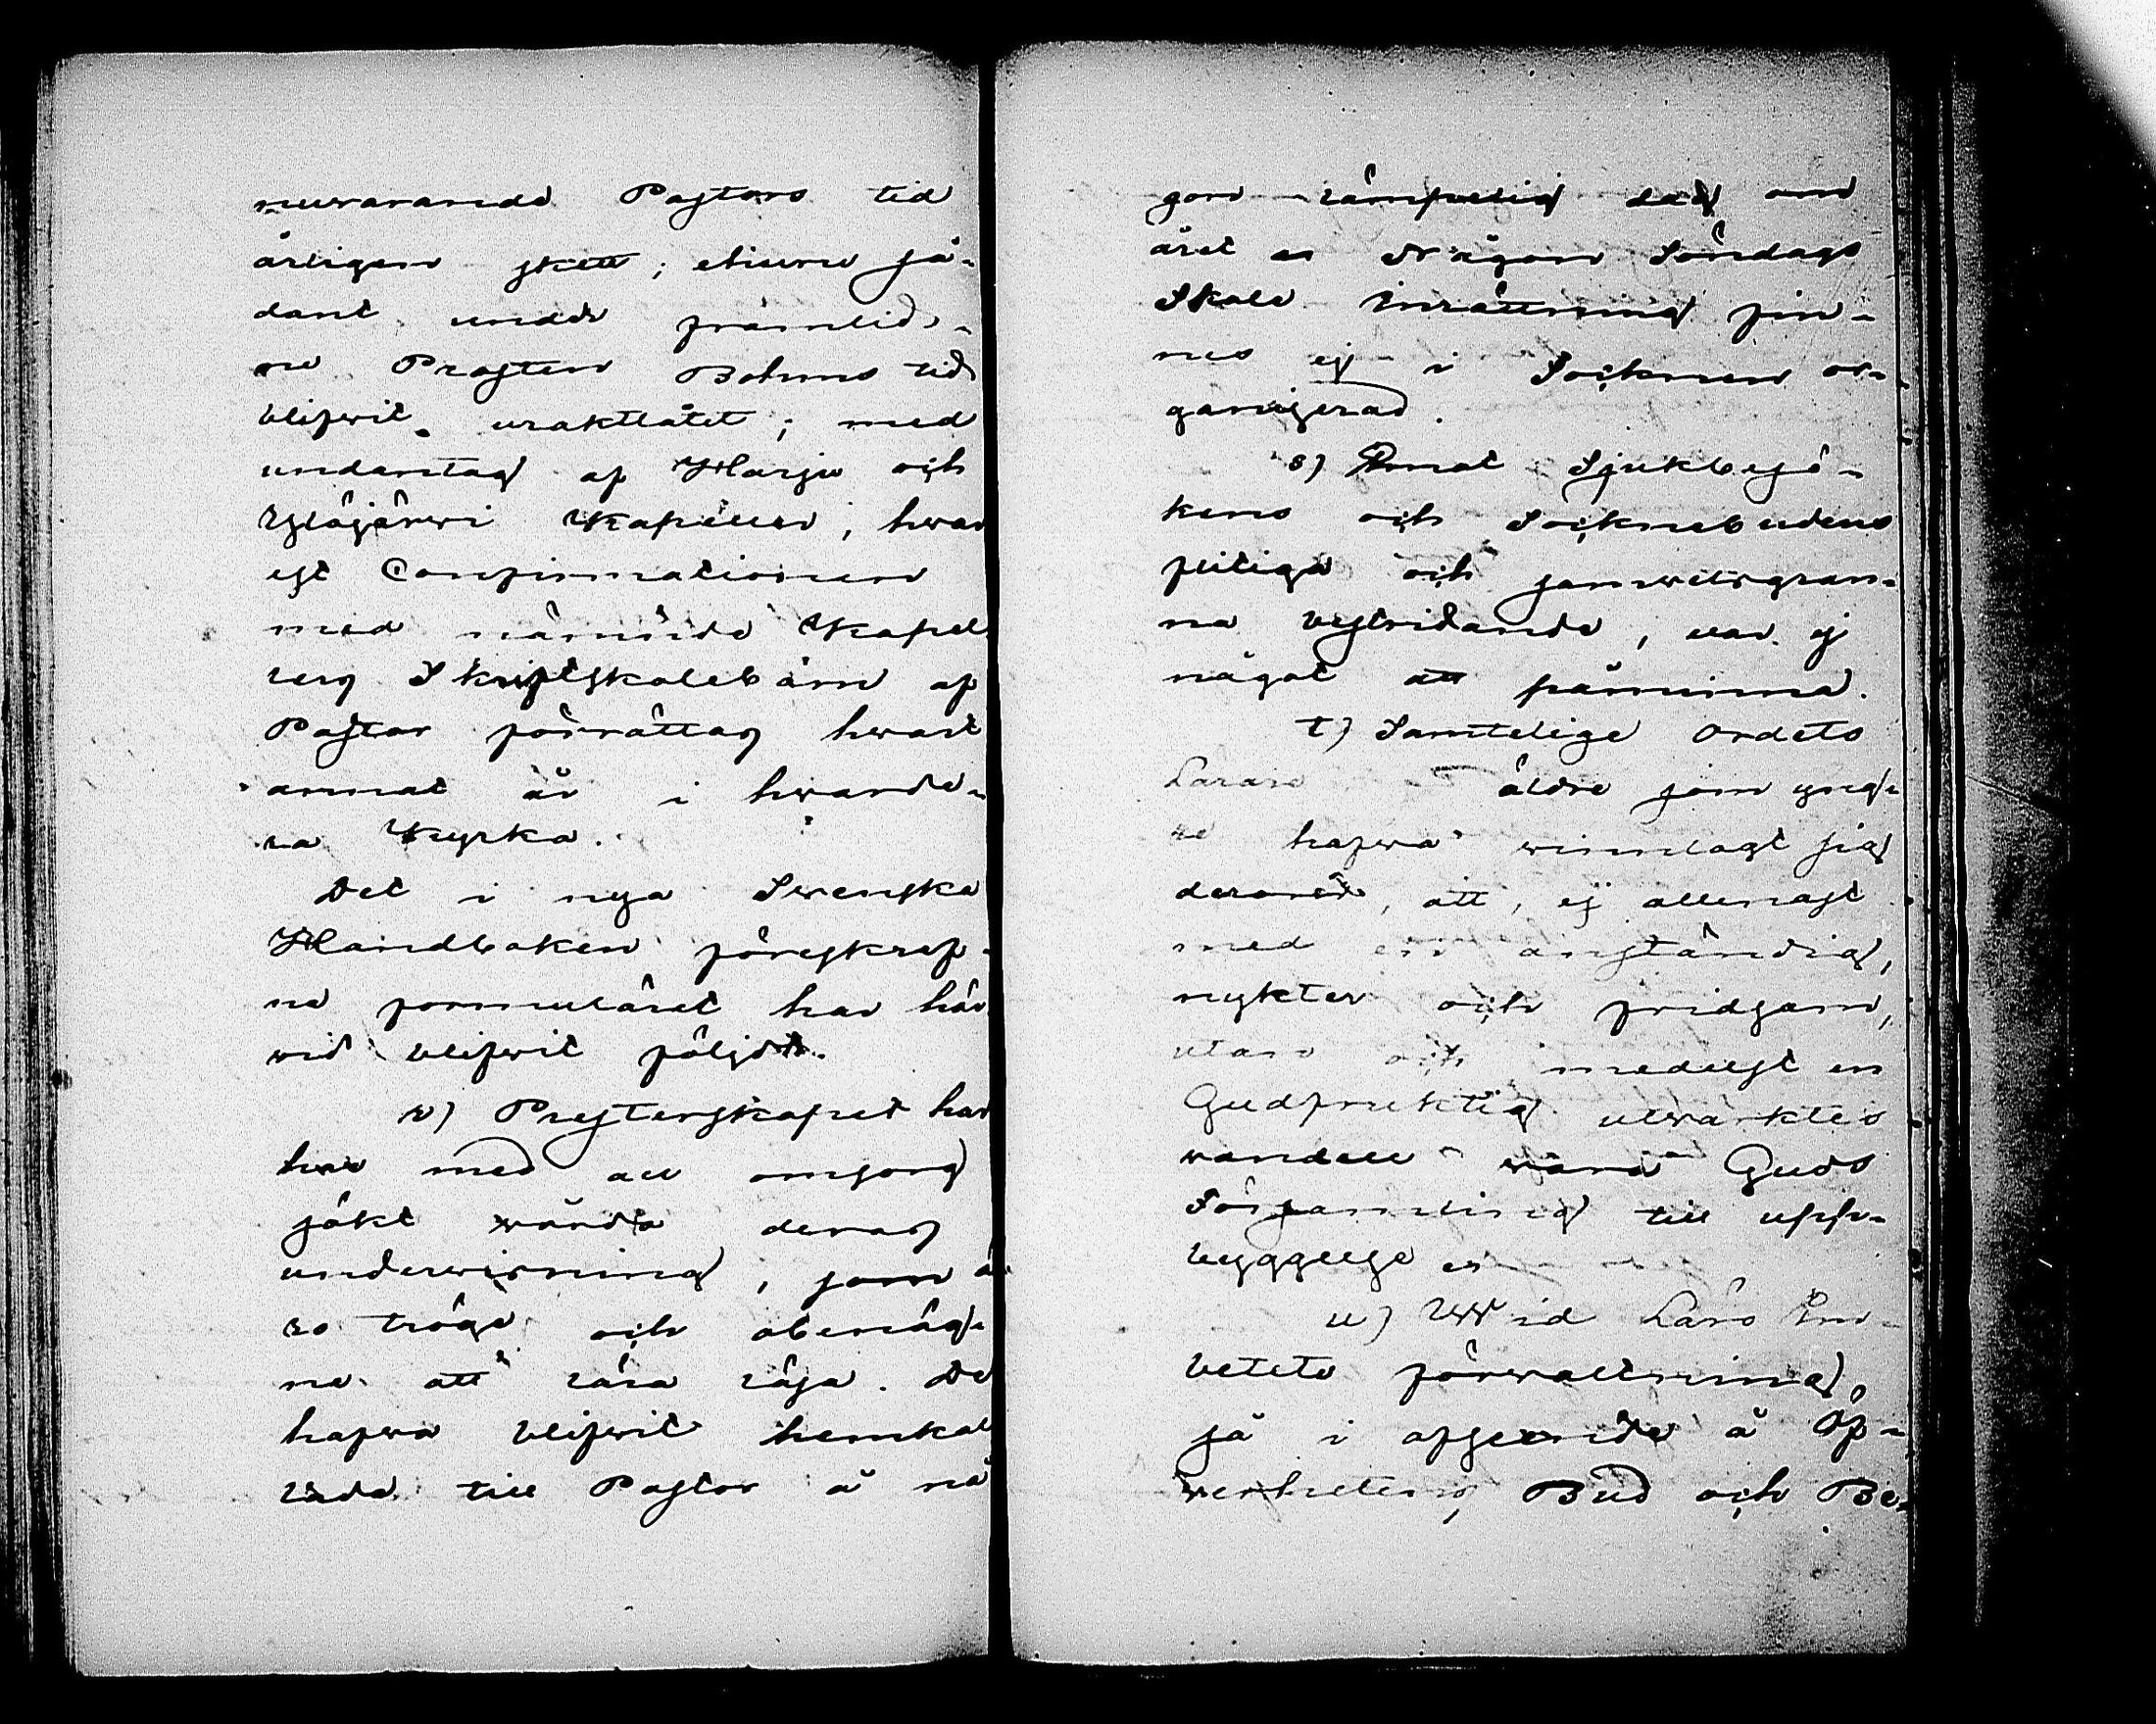 nuvarande Pastors tid
årligen skett; ehuru så-
dant under framlid-
ne Prosten Bohms tid
blifwit uraktlåtet; med
undantag af Harju och
Ylöjärwi Kapeller, hwar
est Confirmationen
med nämnde Kapel
lers Skriftskolebarn af
Pastor förrättas hwart
annat år i hwarde-
ra Kyrka.
Det i nya Swenska
Handboken föreskref-
ne formuläret har här
vid blifwit följdt.
r) Presterskapet har
hwe med all omsorg
sökt wårda deras
underwisning, som ä
ro tröge och obenäg-
ne att lära läsa. De
hafwa blifwit hemkal
lade till Pastor å nå
gon lämpelig dag om
året en Någon Söndags
Skole inrättning fin-
nes ej i Socknen or-
ganiserad.
s) Emot Sjukbesö-
kens och Socknebudens
flitiga och samwetsgran-
na bestridande, var ej
något att påminna.
t) Samtelige Ordets
Lärare äldre som yng-
re hafwa winnlagt sig
derom, att, ej allenast
med en anständig,
nykter och fridsam,
utan och medelst en
Gudfruktig utwärktes
wandell wara Guds
Församling till upp-
byggelse en
u) Wid Läro Em-
betets förwaltning,
så i afseende å Öf-
werhetens Bud och Be-